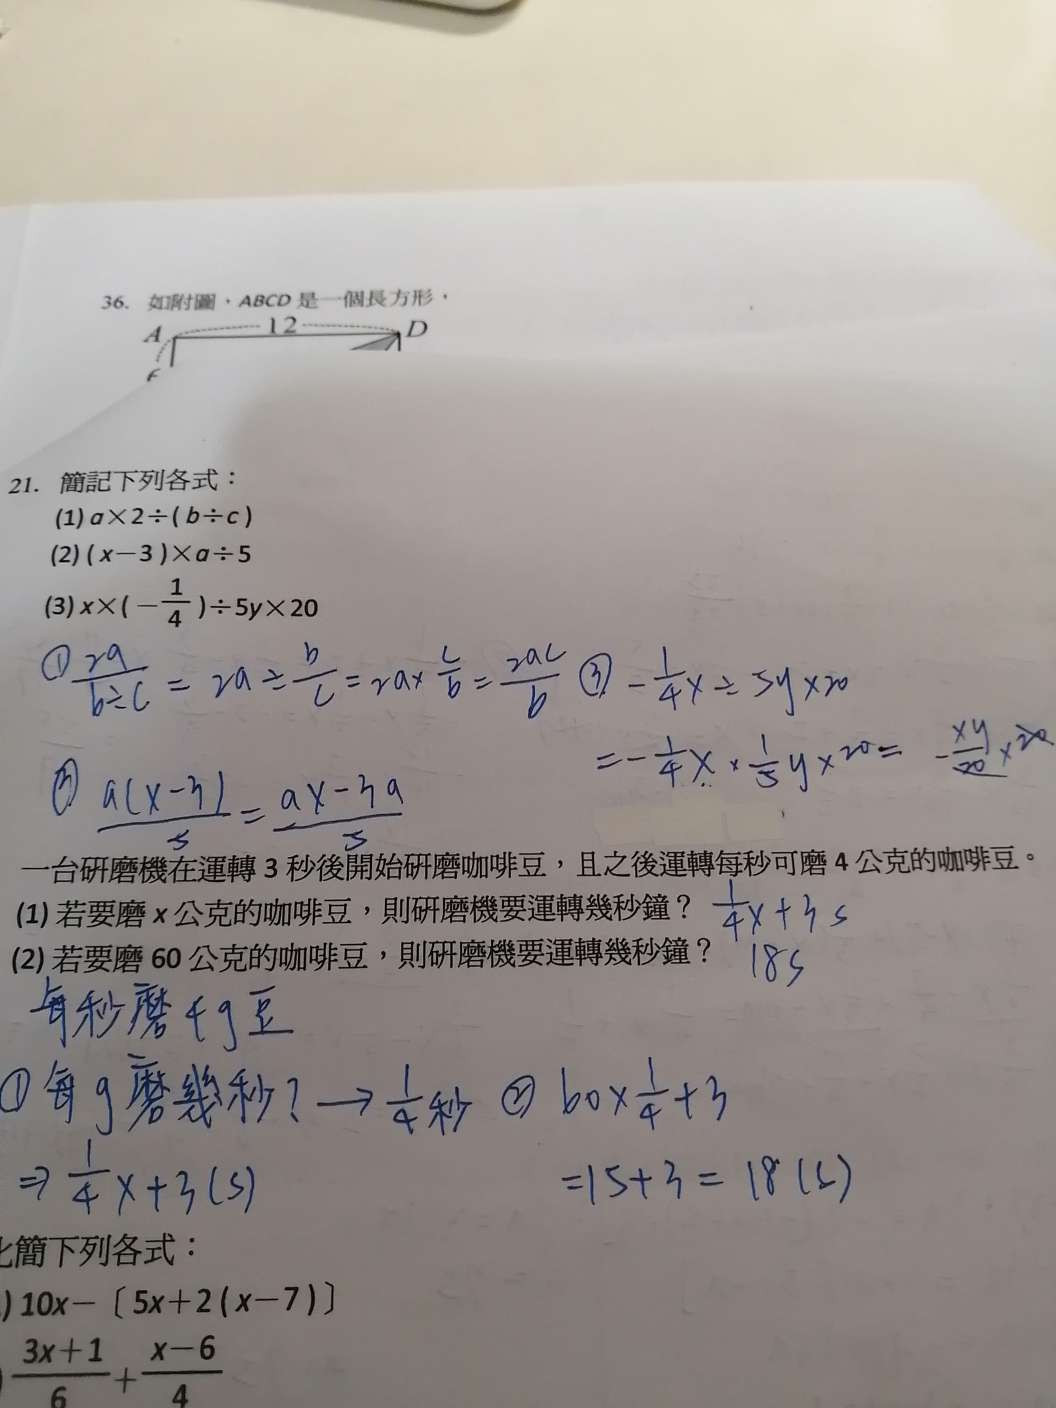 36. 如附圖，ABCD 是一個長方形，
A 12 D
21. 簡記下列各式：
(1) a×2÷( b÷c )
(2) ( x－3 )×a÷5
(3) x×( －1/4 )÷5y×20
① 2a/b÷c = 2a÷b/c = 2a×c/b = 2ac/b
③ -1/4x÷5y×20
=-1/4x×1/5y×20= -xy/20×20
② a(x-3)/5 = ax-3a/5
一台研磨機在運轉 3 秒後開始研磨咖啡豆，且之後運轉每秒可磨 4 公克的咖啡豆。
(1) 若要磨 x 公克的咖啡豆，則研磨機要運轉幾秒鐘？ 1/4x+3 s
(2) 若要磨 60 公克的咖啡豆，則研磨機要運轉幾秒鐘？ 18s
每秒磨4g豆
① 每g磨幾秒?→1/4秒
② 60×1/4+3
⇒1/4x+3(s)
=15+3=18(s)
簡下列各式：
) 10x－〔 5x＋2 ( x－7 ) 〕
3x＋1/6＋x－6/4